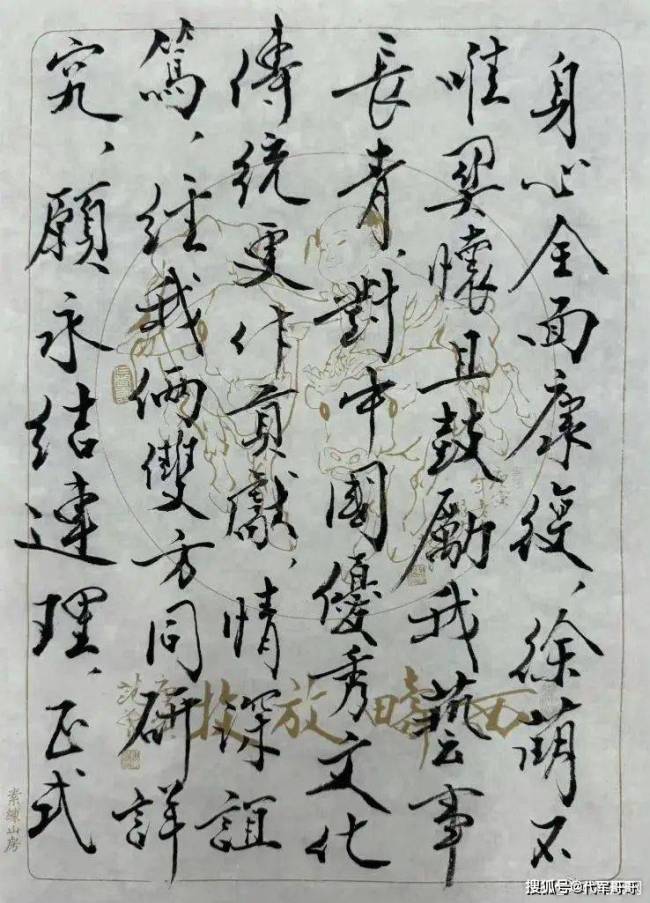 身心全面康復、徐萌不
唯契懷且鼓勵我藝事
長青、對中國優秀文化
傳統更作貢獻、情深誼
篤、經我倆雙方同研詳
究、願永結連理、正式
西疇放牧
素練山房
搜狐号@代军哥哥